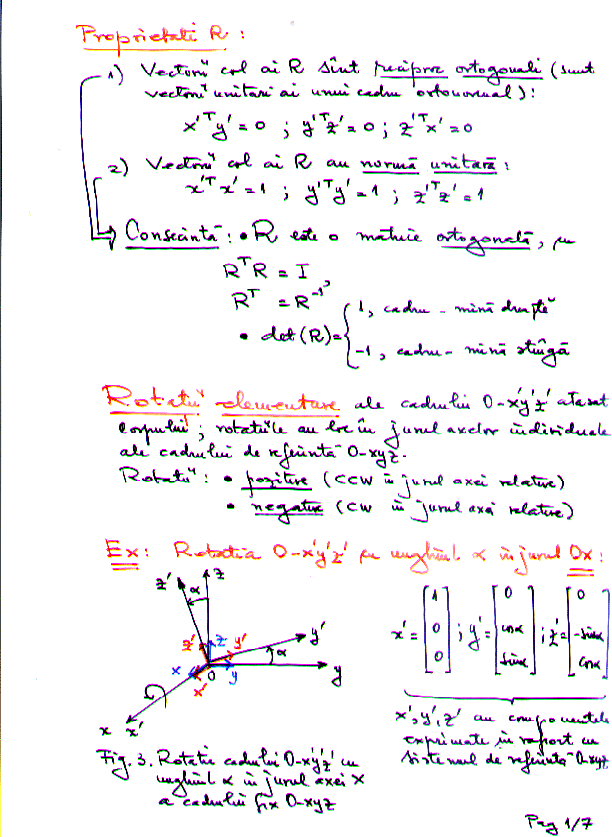 Proprietati R :
1) Vectorii col ai R sînt reciproc ortogonali (sunt
vectori unitari ai unui cadru ortonormal):
x'ᵀy' = 0 ; y'ᵀz' = 0 ; z'ᵀx' = 0
2) Vectorii col ai R au normă unitară :
x'ᵀx' = 1 ; y'ᵀy' = 1 ; z'ᵀz' = 1
Consecintă : • R este o matrice ortogonală,
RᵀR = I,
Rᵀ = R⁻¹
• det(R) = { 1, cadru - mînă dreaptă
-1, cadru - mînă stîngă
Rotatii elementare ale cadrului O-x'y'z' atasat
corpului ; rotatiile au loc în jurul axelor individuale
ale cadrului de referintă O-xyz.
Rotatii : • pozitive (CCW în jurul axei relative)
• negative (CW în jurul axei relative)
Ex : Rotatia O-x'y'z' cu unghiul α în jurul Ox :
z' α z
z' z y' y'
α
x O y y
x'
x x'
x' = [1 0 0] ; y' = [0 cosα sinα] ; z' = [0 -sinα cosα]
x', y', z' au componentele
exprimate în raport cu
sistemul de referintă O-xyz
Fig. 3. Rotatie cadrului O-x'y'z' cu
unghiul α în jurul axei x
a cadrului fix O-xyz
Pag 1/7